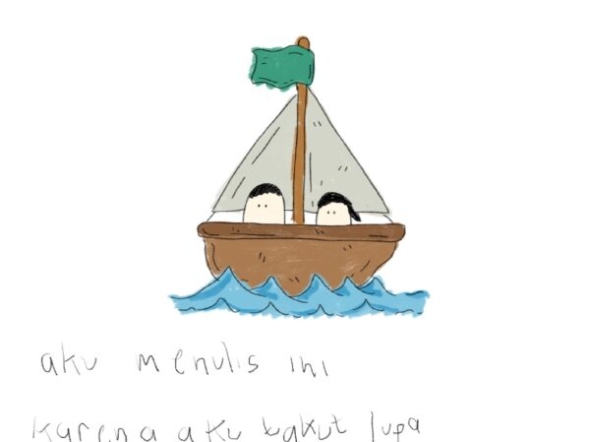 aku menulis ini
karena aku takut lupa